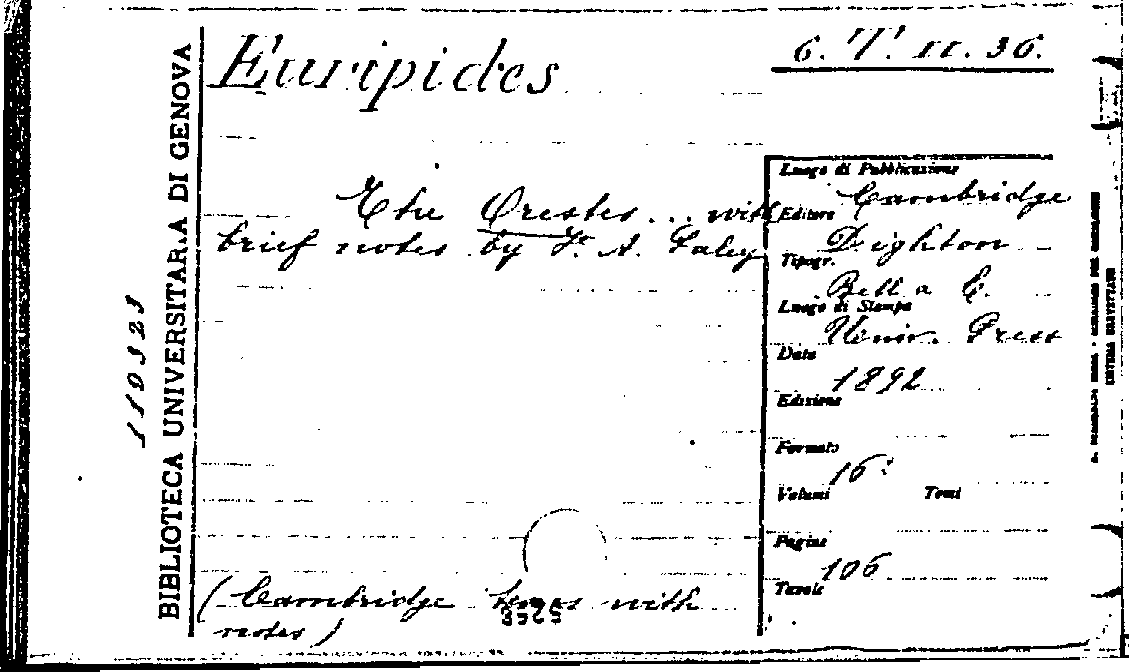 Euripides
6. T. II. 36.
The Orestes... with
brief notes by F. A. Paley
(Cambridge texts with
notes)
Luogo di Pubblicazione
Cambridge
Editore
Dighton
Tipogr.
Bell a C.
Luogo di Stampa
Univ. Press
Data
1892
Edizione
Formato
16:
Volumi Tomi
Pagine
106
Tavole
BIBLIOTECA UNIVERSITARIA DI GENOVA
110323